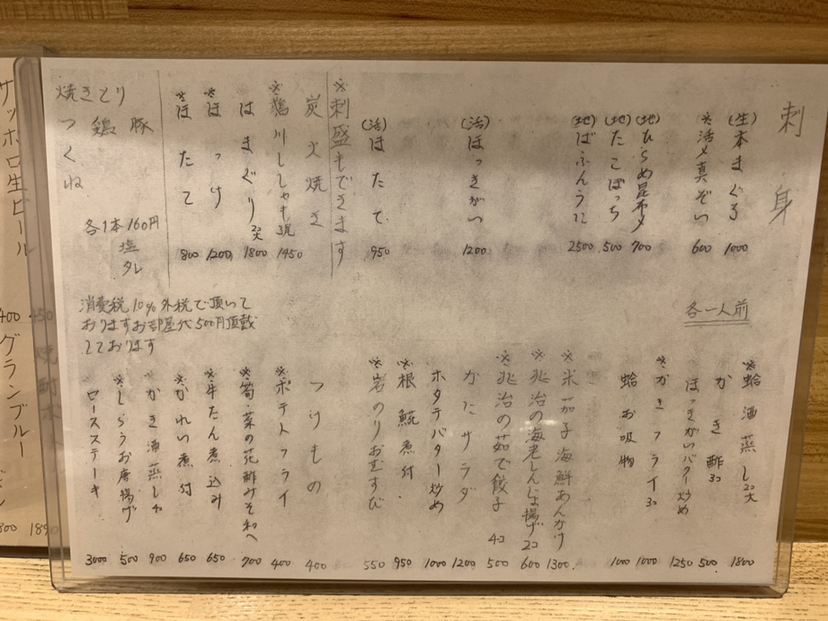 刺身
(生)本まぐろ 1000
※活〆真ぞい 600
(地)ひらめ昆布〆 700
(地)たこぽっち 500
(地)ばふんうに 2500
(活)ほっきがい 1200
(活)ほたて 950
※刺盛もできます
炭火焼き
※鵡川ししゃも 1450
はまぐり 2コ 大 1800
※ほっけ 1200
※ほたて 800
焼きとり
豚
鶏
つくね
各1本160円
塩
タレ
各一人前
消費税10%外税で頂いて
おりますお部屋代500円頂戴
しております
※蛤酒蒸し 2コ 大 1800
かき酢 3コ 500
ほっきがいバター炒め 1250
※かきフライ 3コ 1000
蛤お吸物 1000
※米茄子海鮮あんかけ 1300
※兆治の海老しんじょ揚げ 2コ 600
※兆治の茹で餃子 4コ 500
かにサラダ 1200
ホタテバター炒め 1000
※根魷煮付 950
※岩のりおむすび 550
つけもの 400
※ポテトフライ 400
※筍・菜の花酢みそ和へ 700
※牛たん煮込み 650
※かれい煮付 650
かき酒蒸し 900
※しらうお唐揚げ 500
ロースステーキ 3000
サッポロ生ビール
グランブルー
焼酎